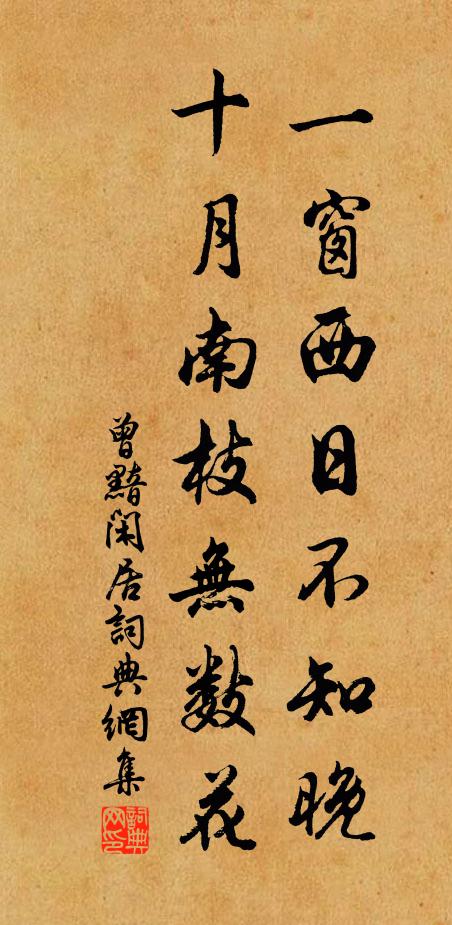 一窗西日不知晚
十月南枝無數花
曾黯閑居詞典網集
詞典網印